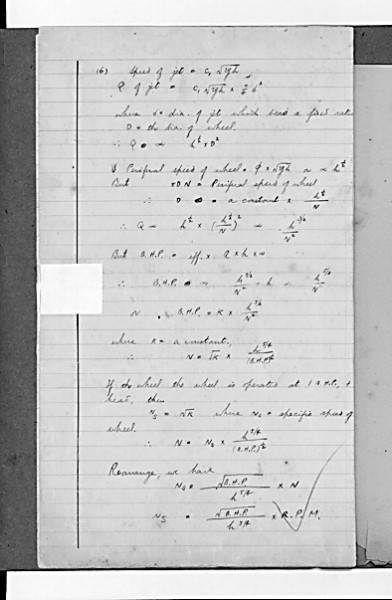 (6) Speed of jet = C₁ √2gh
Q of jet = C₁ √2gh × π/4 d²
where d = dia. of jet which bears a fixed ratio
D = the dia. of wheel.
∴ Q ∝ h^½ × D²
Periferal speed of wheel = φ × √2gh ∝ h^½
But πDN = Periferal speed of wheel
∴ D = a constant × h^½/N
∴ Q ∝ h^½ × (h^½/N)² ∝ h^3/2/N²
But B.H.P. = eff. × Q × h × w
∴ B.H.P. ∝ h^3/2/N² × h ∝ h^5/2/N²
or B.H.P. = K × h^5/2/N²
where K = a constant.
∴ N = √K × h^5/4/(B.H.P.)^½
If the wheel is operated at 1 B.H.P., +
head, then
Ns = √K where Ns = specific speed of
wheel.
∴ N = Ns × h^5/4/(B.H.P.)^½
Rearrange, we have
Ns = √B.H.P./h^5/4 × N
Ns = √B.H.P./h^5/4 × R.P.M.